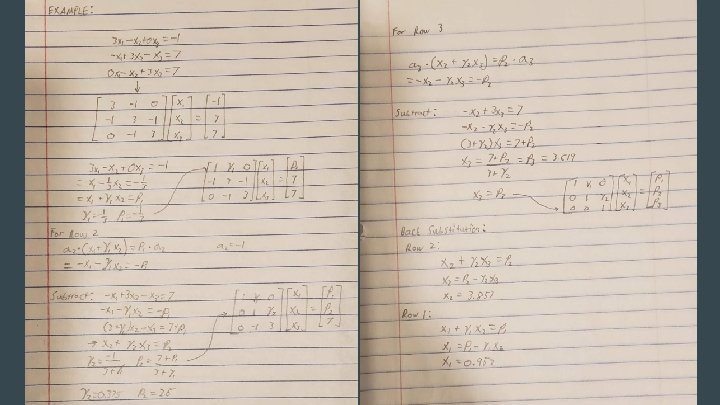 EXAMPLE:
3x₁-x₂+0x₃=-1
-x₁+3x₂-x₃=7
0x₁-x₂+3x₃=7
↓
[3 -1 0; -1 3 -1; 0 -1 3] [x₁; x₂; x₃] = [-1; 7; 7]
3x₁-x₂+0x₃=-1
=x₁-⅓x₂=-⅓
=x₁+γ₁x₂=ρ₁
γ₁=-⅓ ρ₁=-⅓
[1 γ₁ 0; -1 3 -1; 0 -1 3] [x₁; x₂; x₃] = [ρ₁; 7; 7]
For Row 2
a₂·(x₁+γ₁x₂)=ρ₁·a₂ a₂=-1
=-x₁-γ₁x₂=-ρ₁
Subtract: -x₁+3x₂-x₃=7
-x₁-γ₁x₂=-ρ₁
(3+γ₁)x₂-x₃=7+ρ₁
→ x₂+γ₂x₃=ρ₂
γ₂=-1/3+γ₁ ρ₂=7+ρ₁/3+γ₁
[1 γ₁ 0; 0 1 γ₂; 0 -1 3] [x₁; x₂; x₃] = [ρ₁; ρ₂; 7]
For Row 3
a₃·(x₂+γ₂x₃)=ρ₂·a₃
=-x₂-γ₂x₃=-ρ₂
Subtract: -x₂+3x₃=7
-x₂-γ₂x₃=-ρ₂
(3+γ₂)x₃=7+ρ₂
x₃=7+ρ₂/3+γ₂=ρ₃=3.619
x₃=ρ₃
[1 γ₁ 0; 0 1 γ₂; 0 0 1] [x₁; x₂; x₃] = [ρ₁; ρ₂; ρ₃]
Back Substitution:
Row 2:
x₂+γ₂x₃=ρ₂
x₂=ρ₂-γ₂x₃
x₂=3.857
Row 1:
x₁+γ₁x₂=ρ₁
x₁=ρ₁-γ₁x₂
x₁=0.952